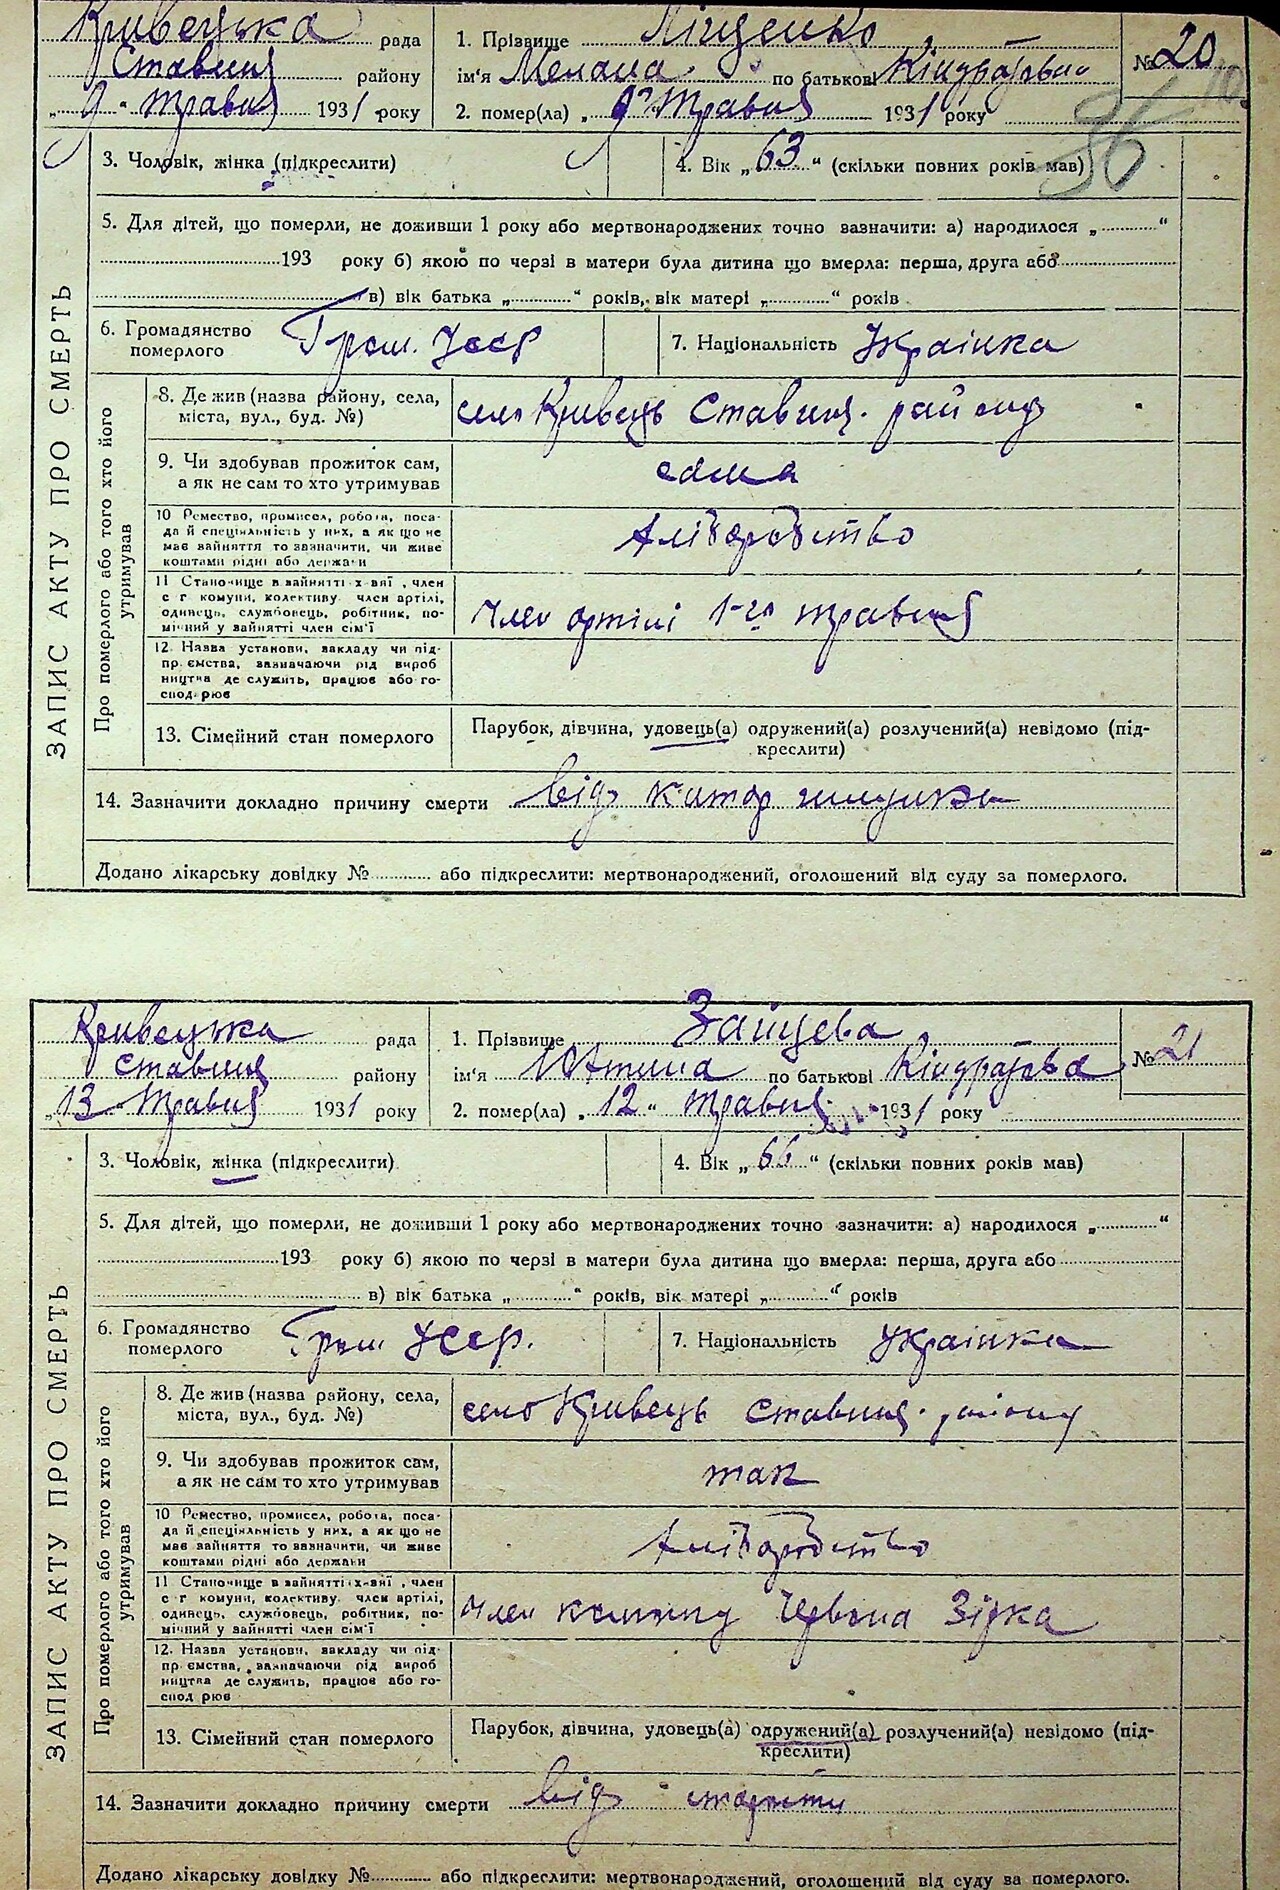 Кривецька рада
Ставищ району
„9“ травня 1931 року
1. Прізвище Ліщенко
ім'я Мелана по батькові Кіндратівни
2. помер(ла) „9“ травня 1931 року
№ 20
36
3. Чоловік, жінка (підкреслити)
4. Вік „63“ (скільки повних років мав)
5. Для дітей, що померли, не доживши 1 року або мертвонароджених точно зазначити: а) народилося „ “
193 року б) якою по черзі в матери була дитина що вмерла: перша, друга або
в) вік батька „ “ років, вік матері „ “ років
ЗАПИС АКТУ ПРО СМЕРТЬ
6. Громадянство
померлого
Гром. Усср
7. Національність Українка
Про померлого або того хто його
утримував
8. Де жив (назва району, села,
міста, вул., буд. №)
село Кривець Ставищ. району
9. Чи здобував прожиток сам,
а як не сам то хто утримував
сама
10 Ремество, промисел, робота, поса-
да й спеціяльність у них, а як що не
має зайняття то зазначити, чи живе
коштами рідні або держави
хліборобство
11 Становище в зайнятті х-вяї, член
с г комуни, колективу член артілі,
одинець, службовець, робітник, по-
мічний у зайнятті член сім'ї
член артілі 1-го травня
12 Назва установи, закладу чи під-
пр ємства, зазначаючи рід вироб
ництва де служить, працює або го-
спод рює
13. Сімейний стан померлого
Парубок, дівчина, удовець(а) одружений(а) розлучений(а) невідомо (під-
креслити)
14. Зазначити докладно причину смерти від катар шлунка
Додано лікарську довідку № або підкреслити: мертвонароджений, оголошений від суду за померлого.
Кривецька рада
Ставищ району
„13“ травня 1931 року
1. Прізвище Зайцева
ім'я по батькові Кіндратова
2. помер(ла) „12“ травня 1931 року
№ 21
3. Чоловік, жінка (підкреслити)
4. Вік „66“ (скільки повних років мав)
5. Для дітей, що померли, не доживши 1 року або мертвонароджених точно зазначити: а) народилося „ “
193 року б) якою по черзі в матери була дитина що вмерла: перша, друга або
в) вік батька „ “ років, вік матері „ “ років
ЗАПИС АКТУ ПРО СМЕРТЬ
6. Громадянство
померлого
Гром Усср.
7. Національність Українка
Про померлого або того хто його
утримував
8. Де жив (назва району, села,
міста, вул., буд. №)
село Кривець Ставищ. району
9. Чи здобував прожиток сам,
а як не сам то хто утримував
так
10 Ремество, промисел, робота, поса-
да й спеціяльність у них, а як що не
має зайняття то зазначити, чи живе
коштами рідні або держави
хліборобство
11 Становище в зайнятті х-вяї, член
с г комуни, колективу член артілі,
одинець, службовець, робітник, по-
мічний у зайнятті член сім'ї
член комуни Червона Зірка
12. Назва установи, закладу чи під-
пр ємства, зазначаючи рід вироб
ництва де служить, працює або го-
спод рює
13. Сімейний стан померлого
Парубок, дівчина, удовець(а) одружений(а) розлучений(а) невідомо (під-
креслити)
14. Зазначити докладно причину смерти від старости
Додано лікарську довідку № або підкреслити: мертвонароджений, оголошений від суду за померлого.